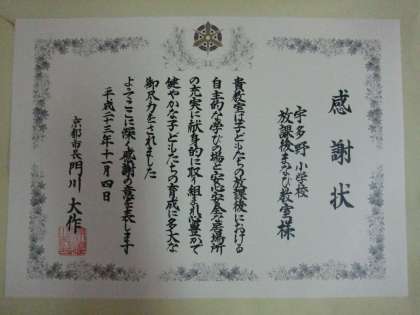 感謝状
宇多野小学校
放課後まなび教室様
貴教室は子どもたちの放課後における
自主的な学びの場と安心安全な居場所
の充実に献身的に取り組まれ心豊かで
健やかな子どもたちの育成に多大な
御尽力をされました
よってここに深く感謝の意を表します
平成二十三年十一月四日
京都市長 門川大作